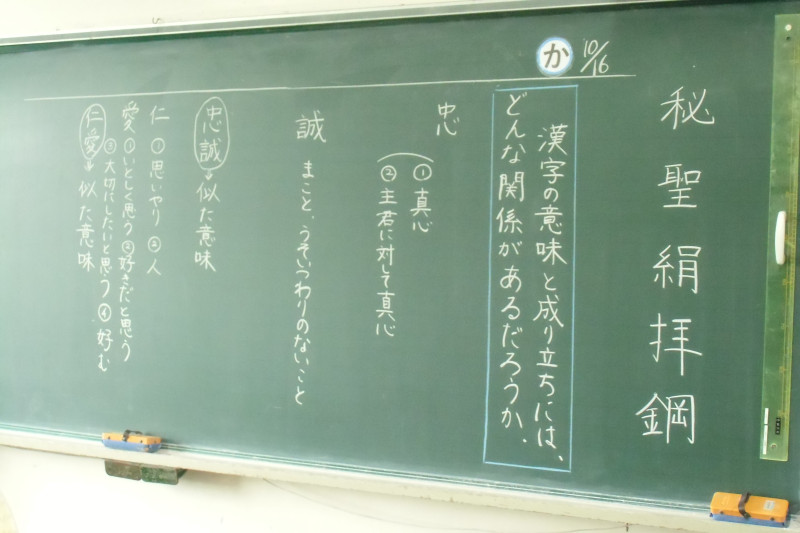 秘聖絹拝鋼
10/16
か
漢字の意味と成り立ちには、
どんな関係があるだろうか.
忠
①真心
②主君に対して真心
誠 まこと、うそいつわりのないこと
忠誠→似た意味
仁 ①思いやり ②人
愛 ①いとしく思う ②好きだと思う
③大切にしたいと思う ④好む
仁愛→似た意味